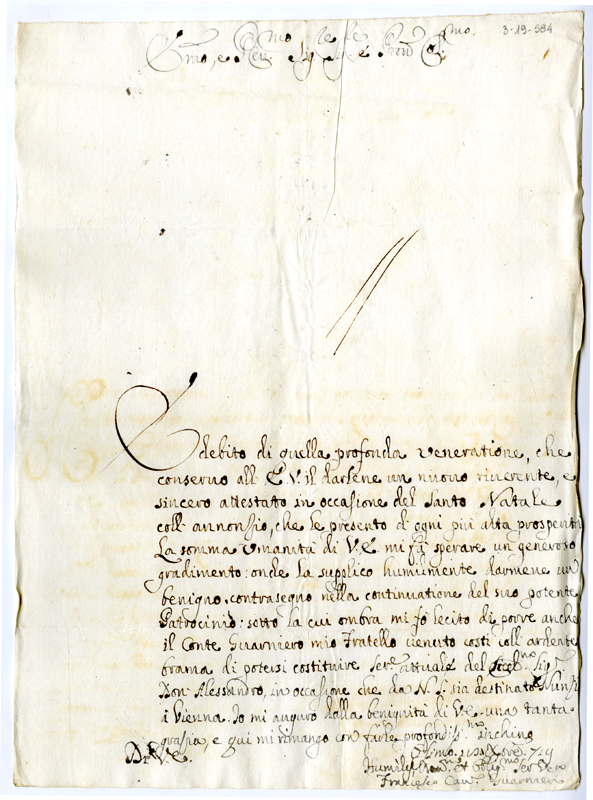 3-19-584
Em̃o, e Reu.mo Sig.re Sig.re e Pron Col.mo
E debito di quella profonda veneratione, che
conseruo all' E.V. il darlene un nuouo riuerente, e
sincero attestato in occasione del Santo Natale
coll' annonzio, che le presento d'ogni più alta prosperità
La somma Umanità di V.E. mi fà sperare un generoso
gradimento: onde la supplico humilmente darmene un
benigno contrasegno nella continuatione del suo potente
Patrocinio: sotto la cui ombra mi fò lecito di porre anche
il Conte Guarniero mio Fratello uenuto costì coll' ardente
brama di potersi costituire Ser.e attuale del Sig.
Don Alessandro, in occasione che da N.S. sia destinato Nunz.
à Vienna. Io mi auguro dalla benignità di V.E. una tanta
grazia, e qui mi rimango con farle profondiss.
Di V.E.
Osimo Xbre 724
Humiliss. et Oblig.mo Ser. Vero
Francesco Cau. Guarnieri